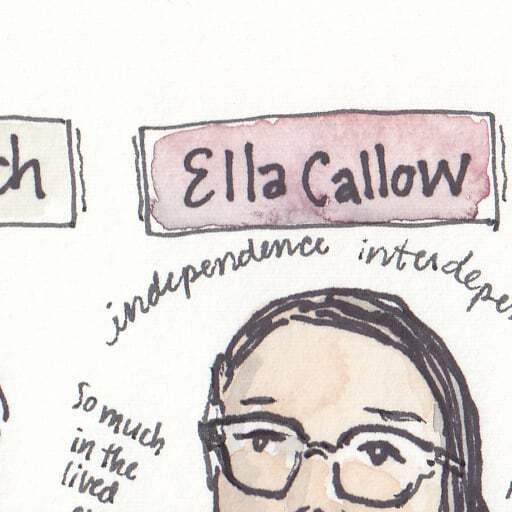 Ella Callow
independence interdepen
So much
in the
lived